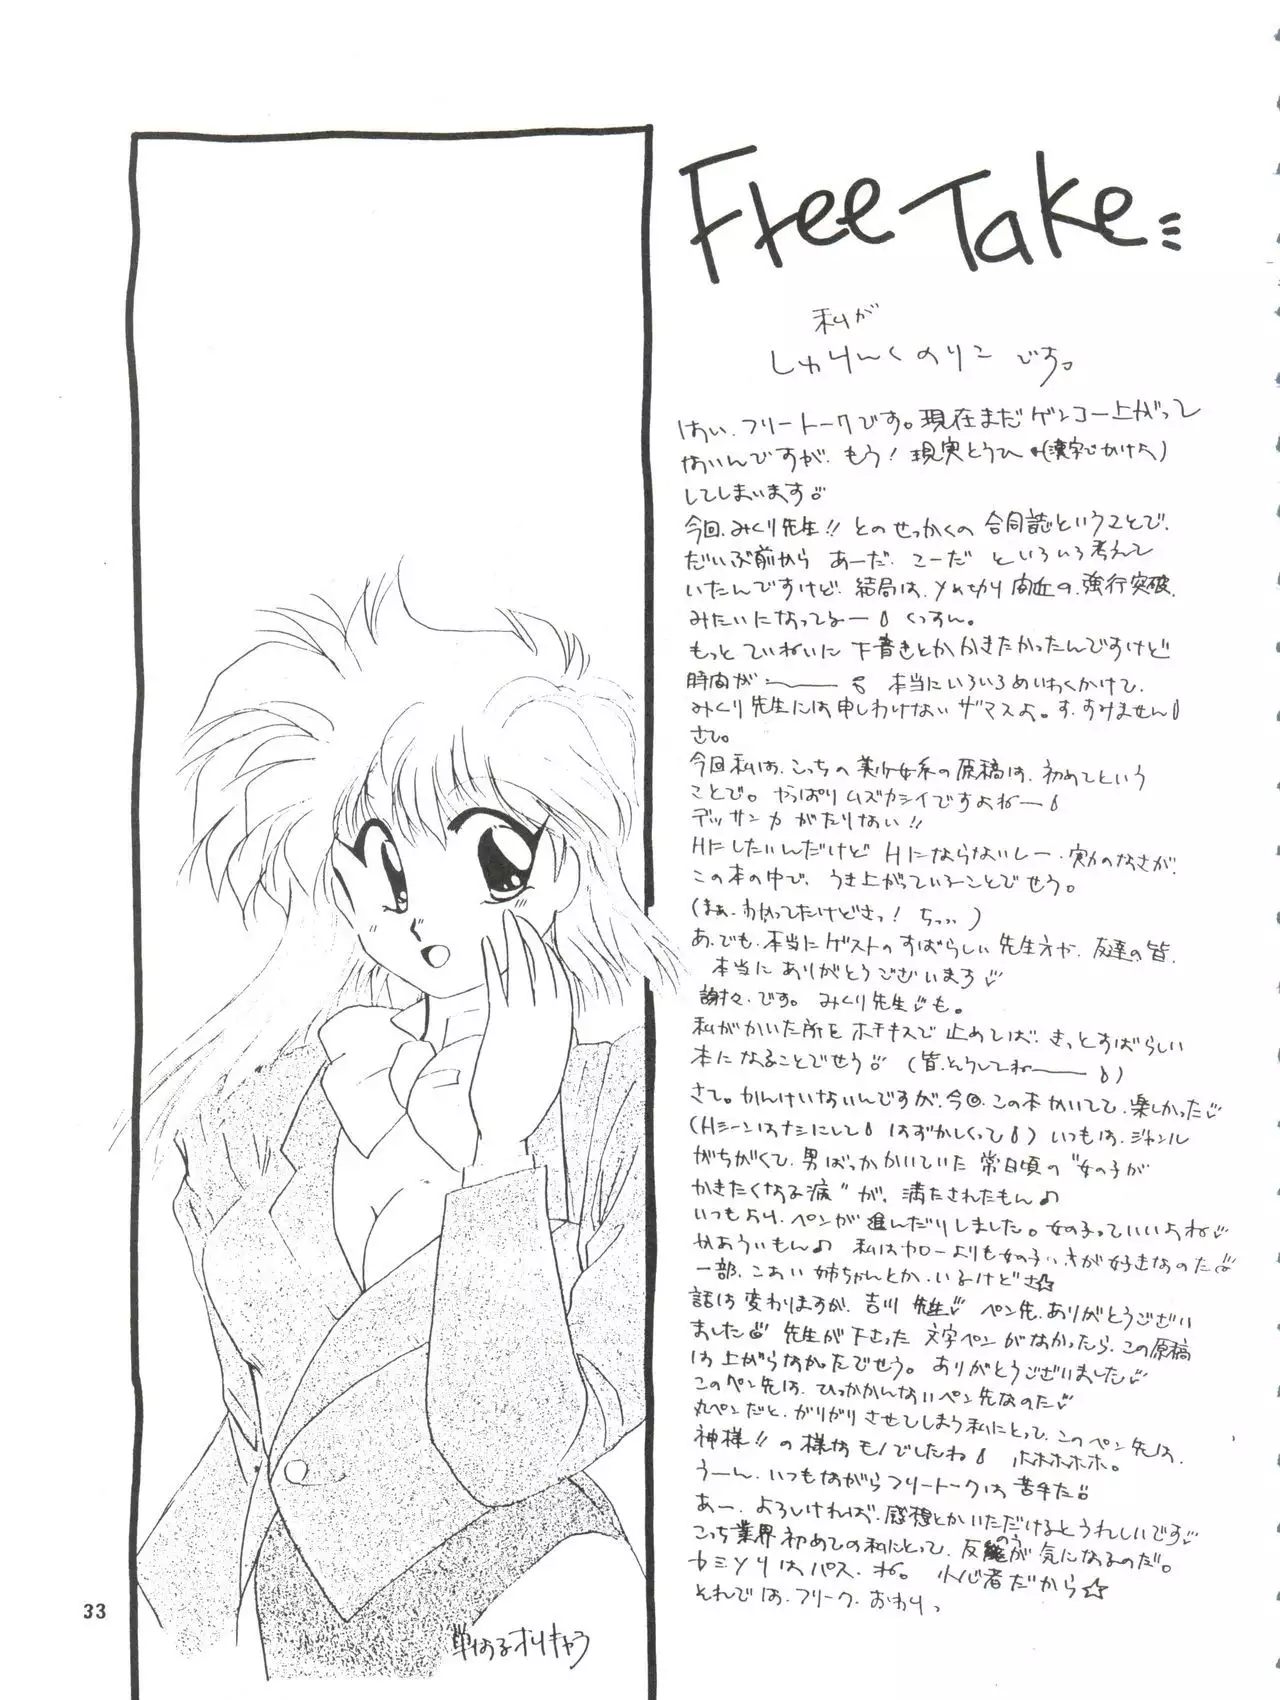 Free Take
私が
しゅりんくのりこ です。
はい、フリートークです。現在まだゲンコー上がって
ないんですが、もう!現実とうひ(漢字でかけよ)
してしまいます
今回、みくり先生!!とのせっかくの合同誌ということで、
だいぶ前からあーだ、こーだといろいろ考えて
いたんですけど、結局は、〆切り間近の、強行突破
みたいになってるー くっすん。
もっとていねいに下書きとかかきたかったんですけど
時間がー 本当にいろいろめいわくかけて、
みくり先生には申しわけないザマスよ。す、すみません
さて。
今回私は、こっちの美少女系の原稿は、初めてという
ことで。やっぱりムズカシイですよねー
デッサン力がたりない!!
Hにしたいんだけど Hにならないしー、実力のなさが、
この本の中で、うき上がっていることでせう。
(まぁ、わかってたけどさっ! ちっ)
あ、でも、本当にゲストのすばらしい先生方や、友達の皆、
本当にありがとうございます
謝々、です。みくり先生も。
私がかいた所をホチキスで止めてしば、きっとすばらしい
本になることでせう (皆、そうしてねー)
さて。かんけいないんですが、今回、この本かいてて、楽しかった
(Hシーンはナシにして はずかしくって)いつもは、ジャンル
がちがくて、男ばっかかいていた常日頃の"女の子が
かきたくなる病"が、満たされたもん♪
いつもより、ペンが進んだりしました。女の子っていいよね
かあういもん♪ 私はヤローよりも女の子、が好きなのだ
一部、こあい姉ちゃんとか、いるけどさ☆
話は変わりますが、吉川先生 ペン先、ありがとうござい
ました 先生が下さった文字ペンがなかったら、この原稿
は上がらなかったでせう。ありがとうございました
このペン先は、ひっかかんないペン先なのだ
丸ペンだと、がりがりさせてしまう私にとって、このペン先は、
神様!!の様なモノでしたね ホホホホホ。
うーん、いつもながらフリートークは苦手だ
あー、よろしければ、感想とかいただけるとうれしいです
こっち業界初めての私にとって、反応が気になるのだ。
カミソリはパス、ね。小心者だから☆
それでは、フリーク、おわりっ
単なるオリキャラ
33